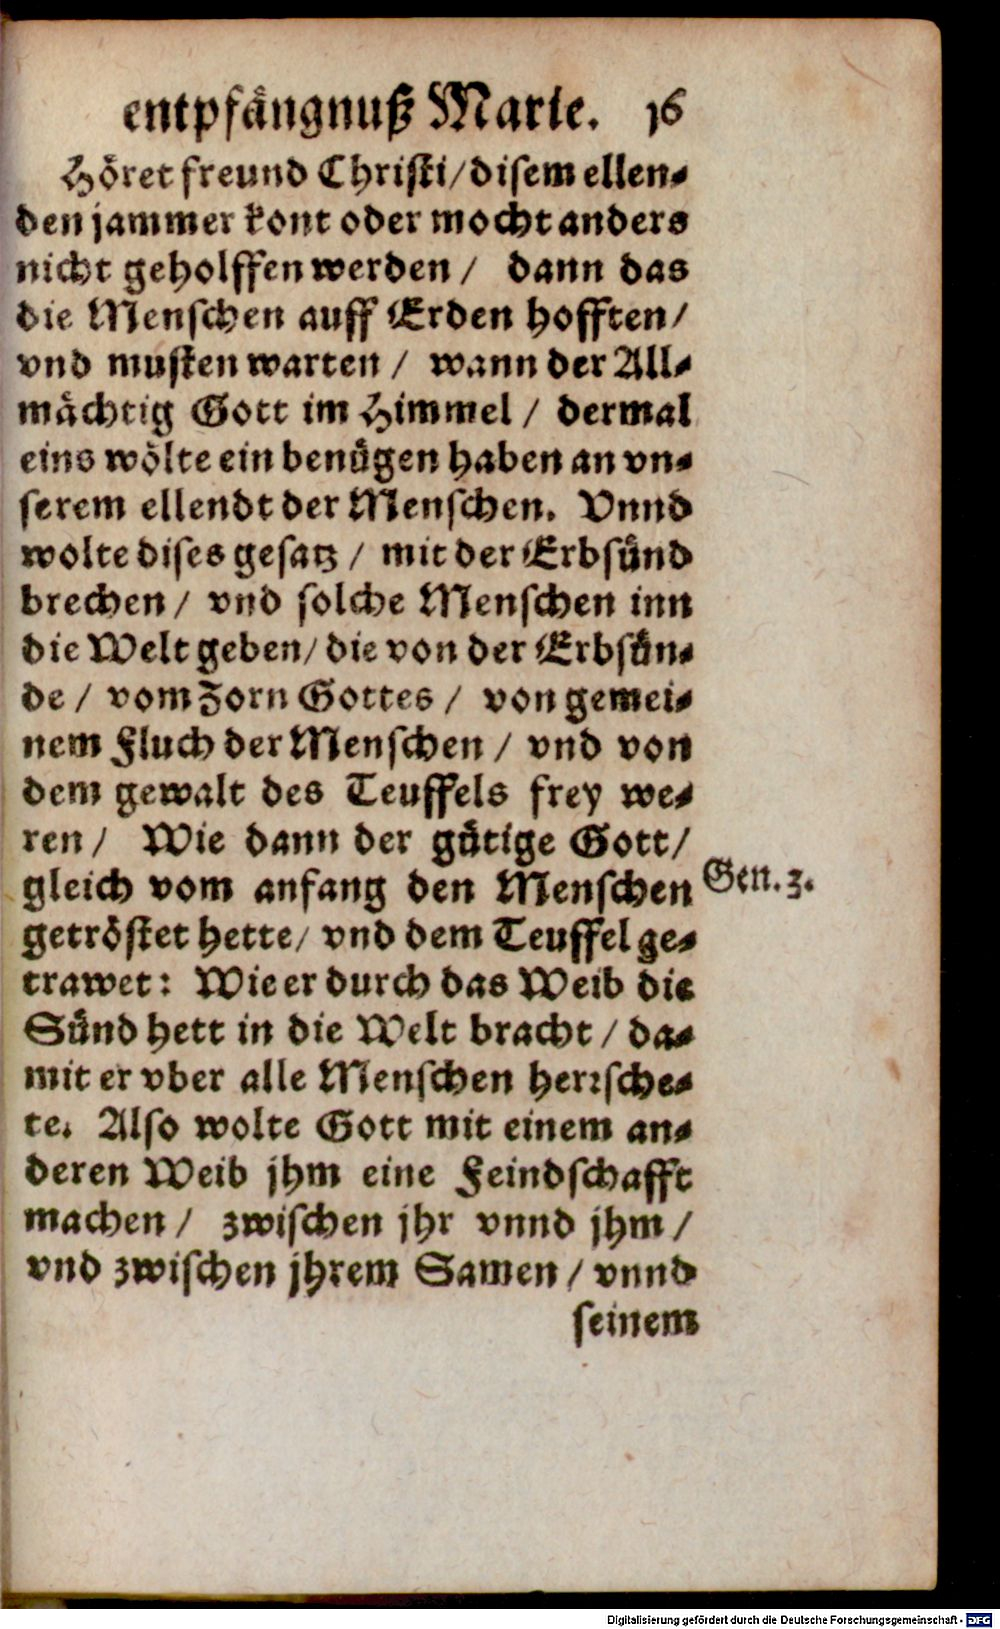 entpfångnuß Marie. 16
Höret freund Christi/disem ellen⸗
den jammer kont oder mocht anders
nicht geholffen werden/ dann das
die Menschen auff Erden hofften/
vnd musten warten/ wann der All⸗
måchtig Gott im Himmel/ dermal
eins wölte ein benůgen haben an vn⸗
serem ellendt der Menschen. Vnnd
wolte dises gesatz/ mit der Erbsünd
brechen/ vnd solche Menschen inn
die Welt geben/ die von der Erbsün⸗
de/ vom Zorn Gottes/ von gemei⸗
nem Fluch der Menschen/ vnd von
dem gewalt des Teuffels frey we⸗
ren/ Wie dann der gütige Gott/
gleich vom anfang den Menschen
Gen. 3.
getröstet hette/ vnd dem Teuffel ge⸗
trawet: Wie er durch das Weib die
Sünd hett in die Welt bracht/ da⸗
mit er vber alle Menschen herrsche⸗
te. Also wolte Gott mit einem an⸗
deren Weib jhm eine Feindschafft
machen/ zwischen jhr vnnd jhm/
vnd zwischen jhrem Samen/ vnnd
seinem
Digitalisierung gefördert durch die Deutsche Forschungsgemeinschaft - DFG